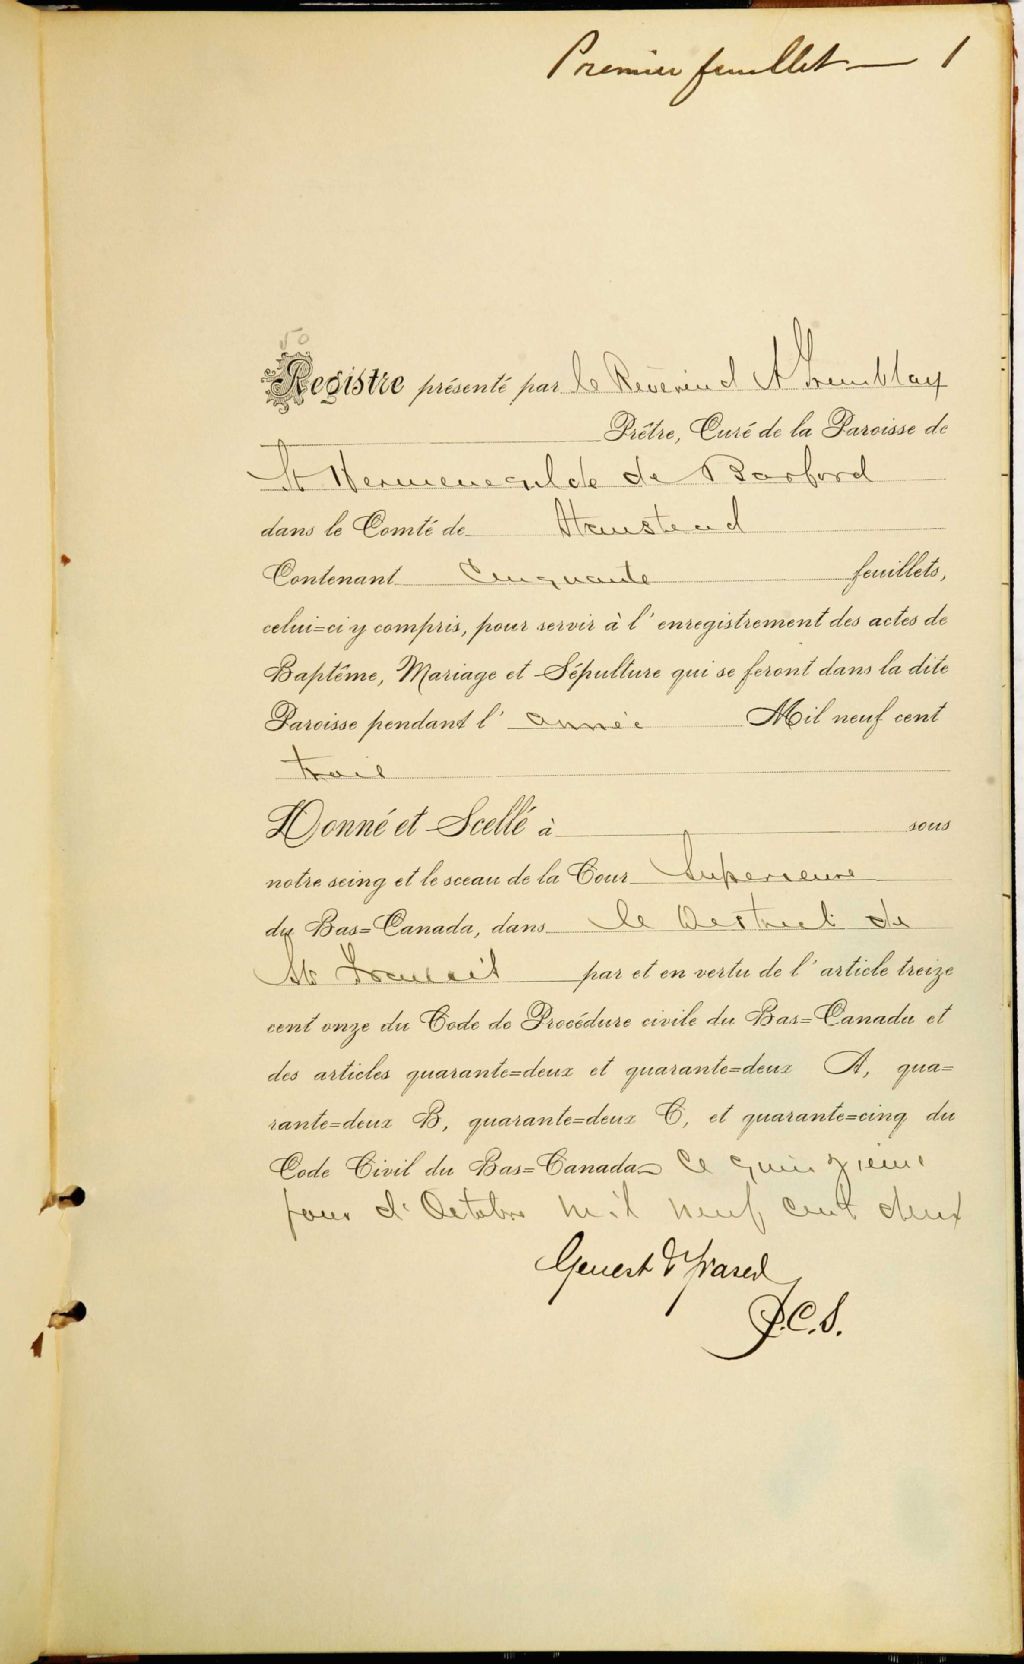 Premier feuillet — 1
50
Registre présenté par le Révérend A Tremblay
Prêtre, Curé de la Paroisse de
St Hermenegilde de Barford
dans le Comté de Stanstead
Contenant Cinquante feuillets,
celui=ci y compris, pour servir à l'enregistrement des actes de
Baptême, Mariage et Sépulture qui se feront dans la dite
Paroisse pendant l' année Mil neuf cent
trois
Donné et Scellé à sous
notre seing et le sceau de la Cour Superieure
du Bas=Canada, dans le District de
St Francois par et en vertu de l'article treize
cent onze du Code de Procédure civile du Bas=Canada et
des articles quarante=deux et quarante=deux A, qua=
rante=deux B, quarante=deux C, et quarante=cinq du
Code Civil du Bas=Canada Ce quinzieme
jour d'Octobre mil neuf cent deux
Genest &
P.C.S.